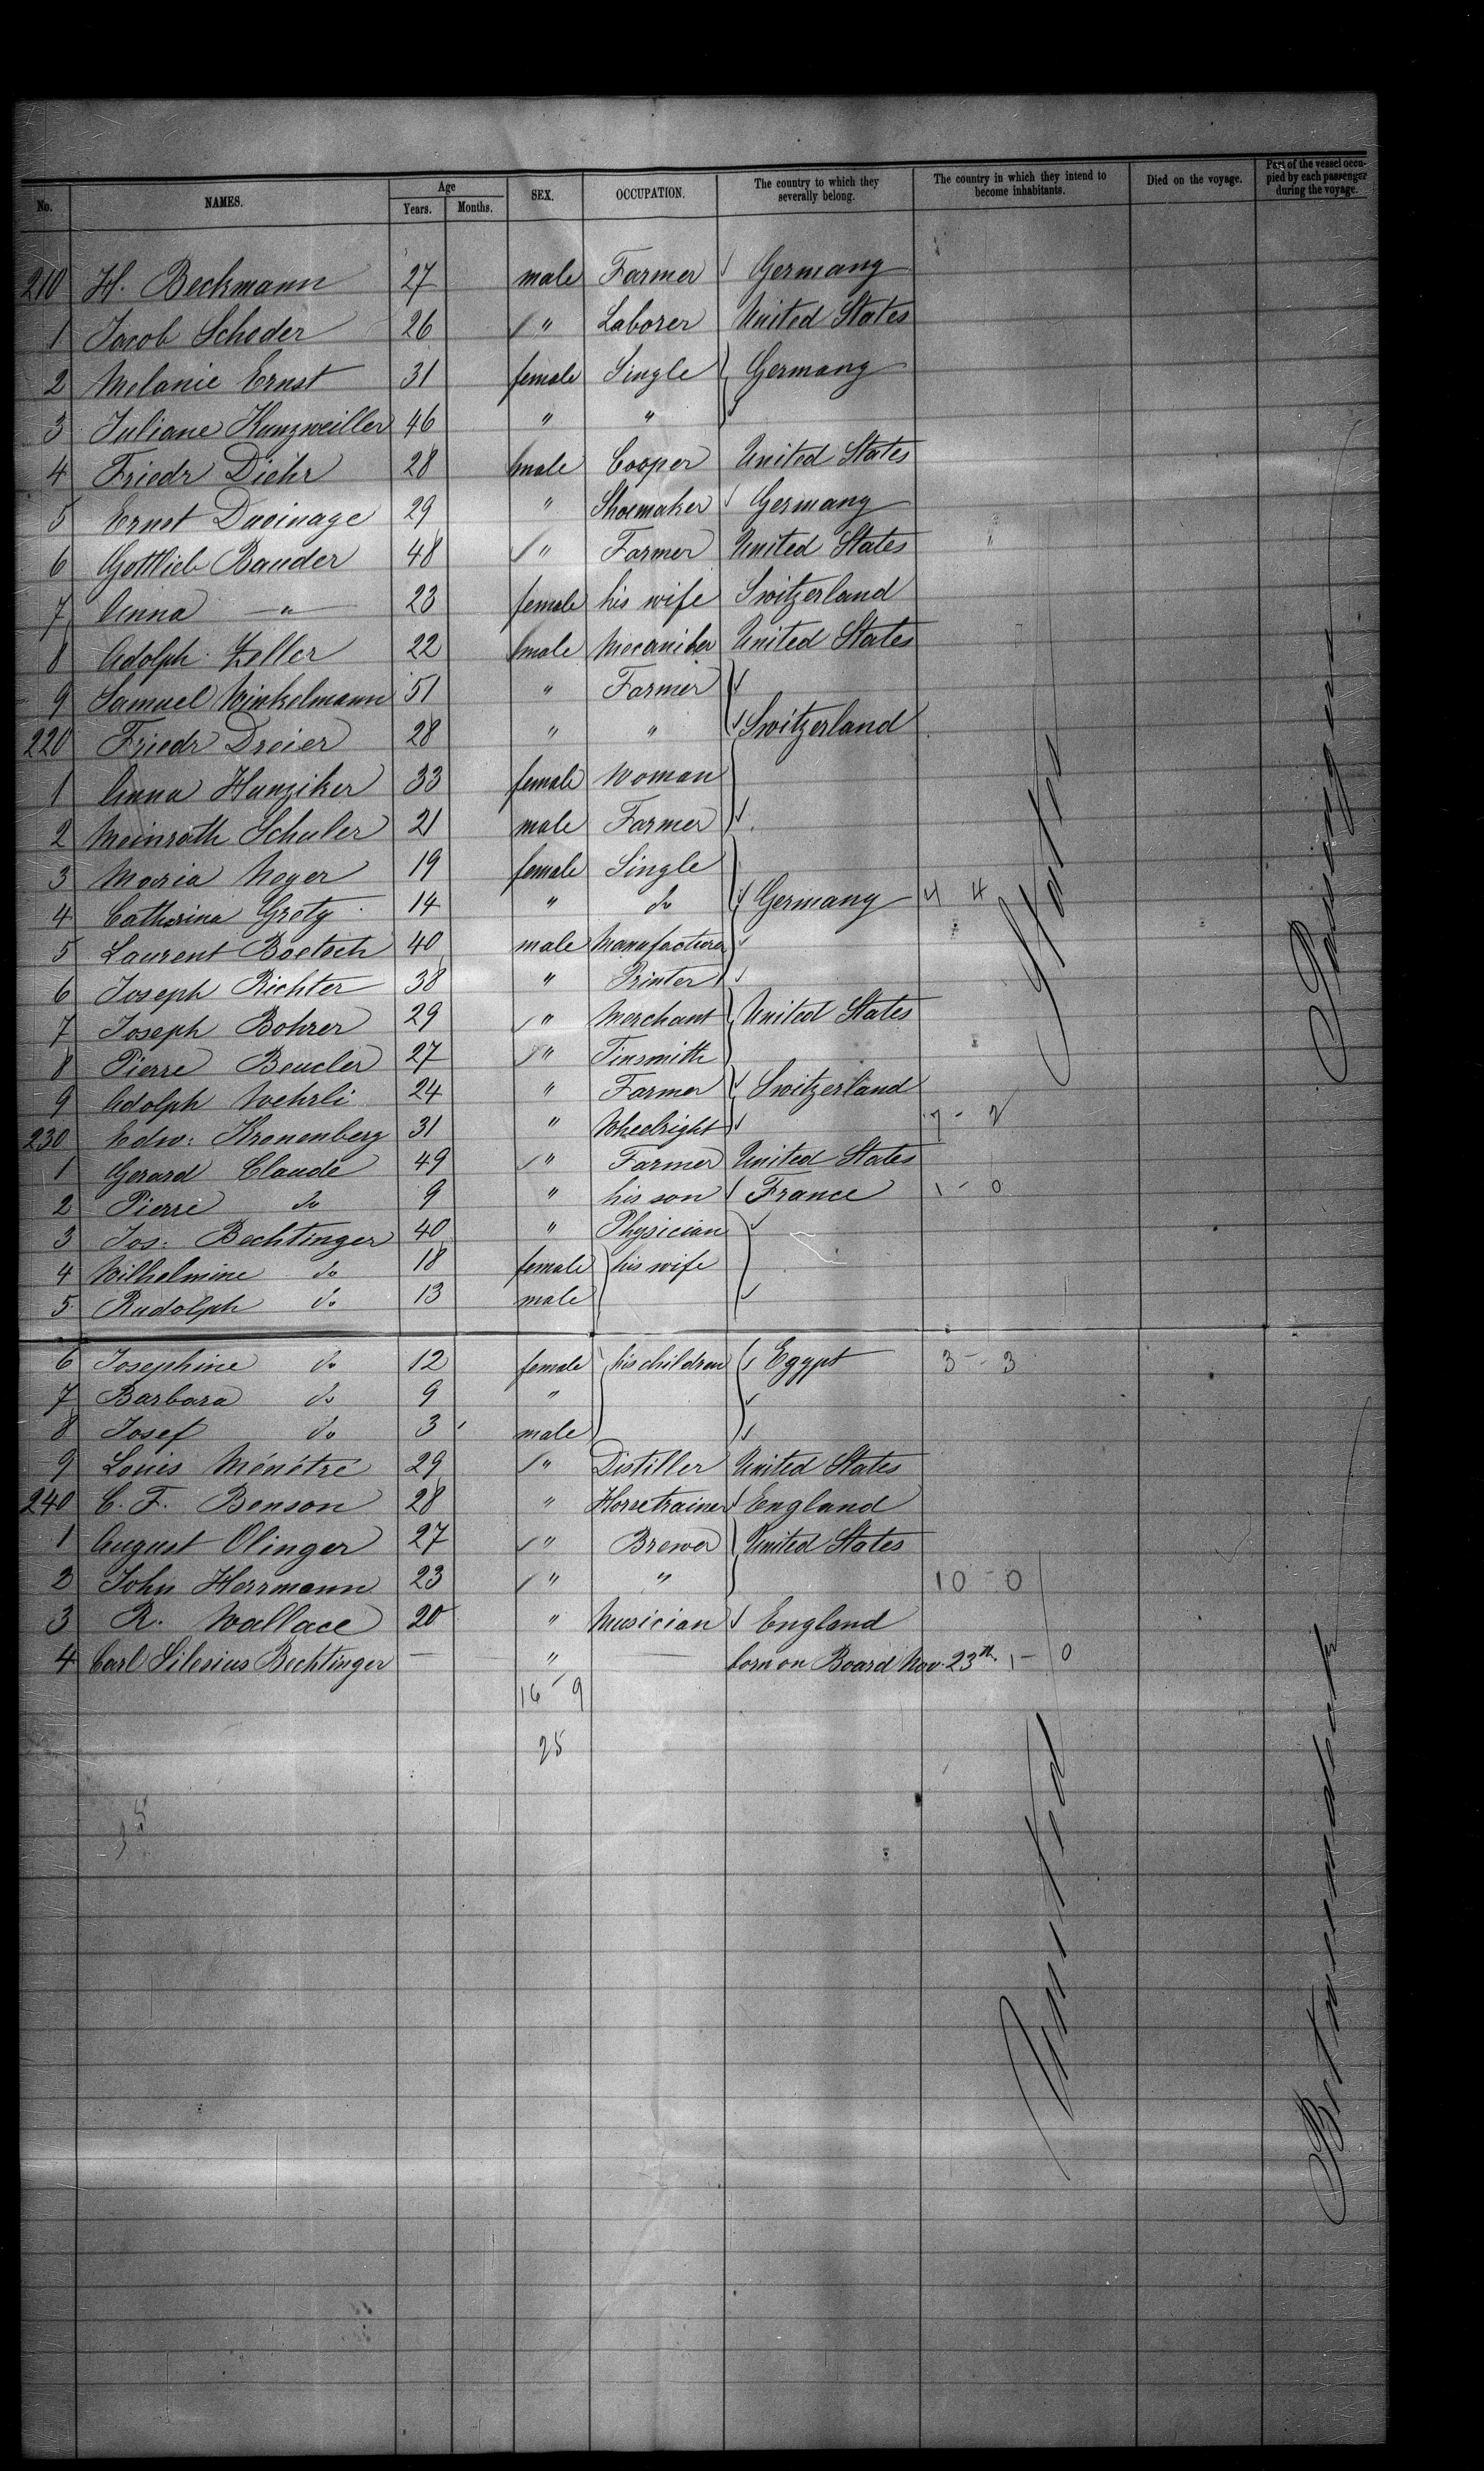 No. NAMES. Age Years. Months. SEX. OCCUPATION. The country to which they severally belong. The country in which they intend to become inhabitants. Died on the voyage. Part of the vessel occupied by each passenger during the voyage.
210 H. Beckmann 27 male Farmer Germany
1 Jacob Scheder 26 " Laborer United States
2 Melanie Ernst 31 female Single Germany
3 Juliane Kunzweiller 46 " "
4 Friedr Diehr 28 male Cooper United States
5 Ernst Duvinage 29 " Shoemaker Germany
6 Gottlieb Bauder 48 " Farmer United States
7 Anna " 23 female his wife Switzerland
8 Adolph Zeller 22 male Mecaniker United States
9 Samuel Winkelmann 51 " Farmer
220 Friedr Dreier 28 " " Switzerland
1 Anna Hunziker 33 female Woman
2 Meinrath Schuler 21 male Farmer
3 Maria Meyer 19 female Single
4 Catharina Grety 14 " do Germany 4 4
5 Laurent Boetsch 40 male Manufacturer
6 Joseph Richter 38 " Printer
7 Joseph Bohrer 29 " Merchant United States
8 Pierre Beucler 27 " Tinsmith
9 Adolph Wehrli 24 " Farmer Switzerland
230 Edw: Kronenberg 31 " Wheelright 7 - 2
1 Gerard Claude 49 " Farmer United States
2 Pierre do 9 " his son France 1 - 0
3 Jos: Bechtinger 40 " Physician
4 Wilhelmine do 18 female his wife
5 Rudolph do 13 male
6 Josephine do 12 female his children Egypt 3 - 3
7 Barbara do 9 "
8 Josef do 3 male
9 Louis Ménétré 29 " Distiller United States
240 C. F. Benson 28 " Horsetrainer England
1 August Olinger 27 " Brewer United States
2 John Herrmann 23 " " 10 - 0
3 R. Wallace 20 " Musician England
4 Carl Silesius Bechtinger — " — born on Board Nov. 23th 1 - 0
16 - 9
25
United States
Betweendeck Passengers